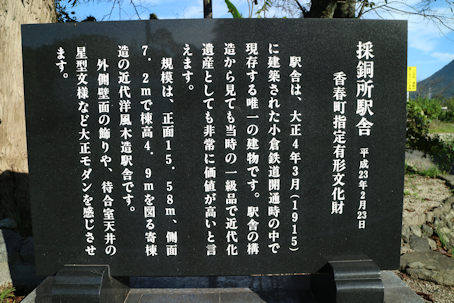 採銅所駅舎 平成23年2月23日
香春町指定有形文化財
駅舎は、大正4年3月(1915)
に建築された小倉鉄道開通時の中で
現存する唯一の建物です。駅舎の構
造から見ても当時の一級品で近代化
遺産としても非常に価値が高いと言
えます。
規模は、正面15.58m、側面
7.2mで棟高4.9mを図る寄棟
造の近代洋風木造駅舎です。
外側壁面の飾りや、待合室天井の
星型文様など大正モダンを感じさせ
ます。